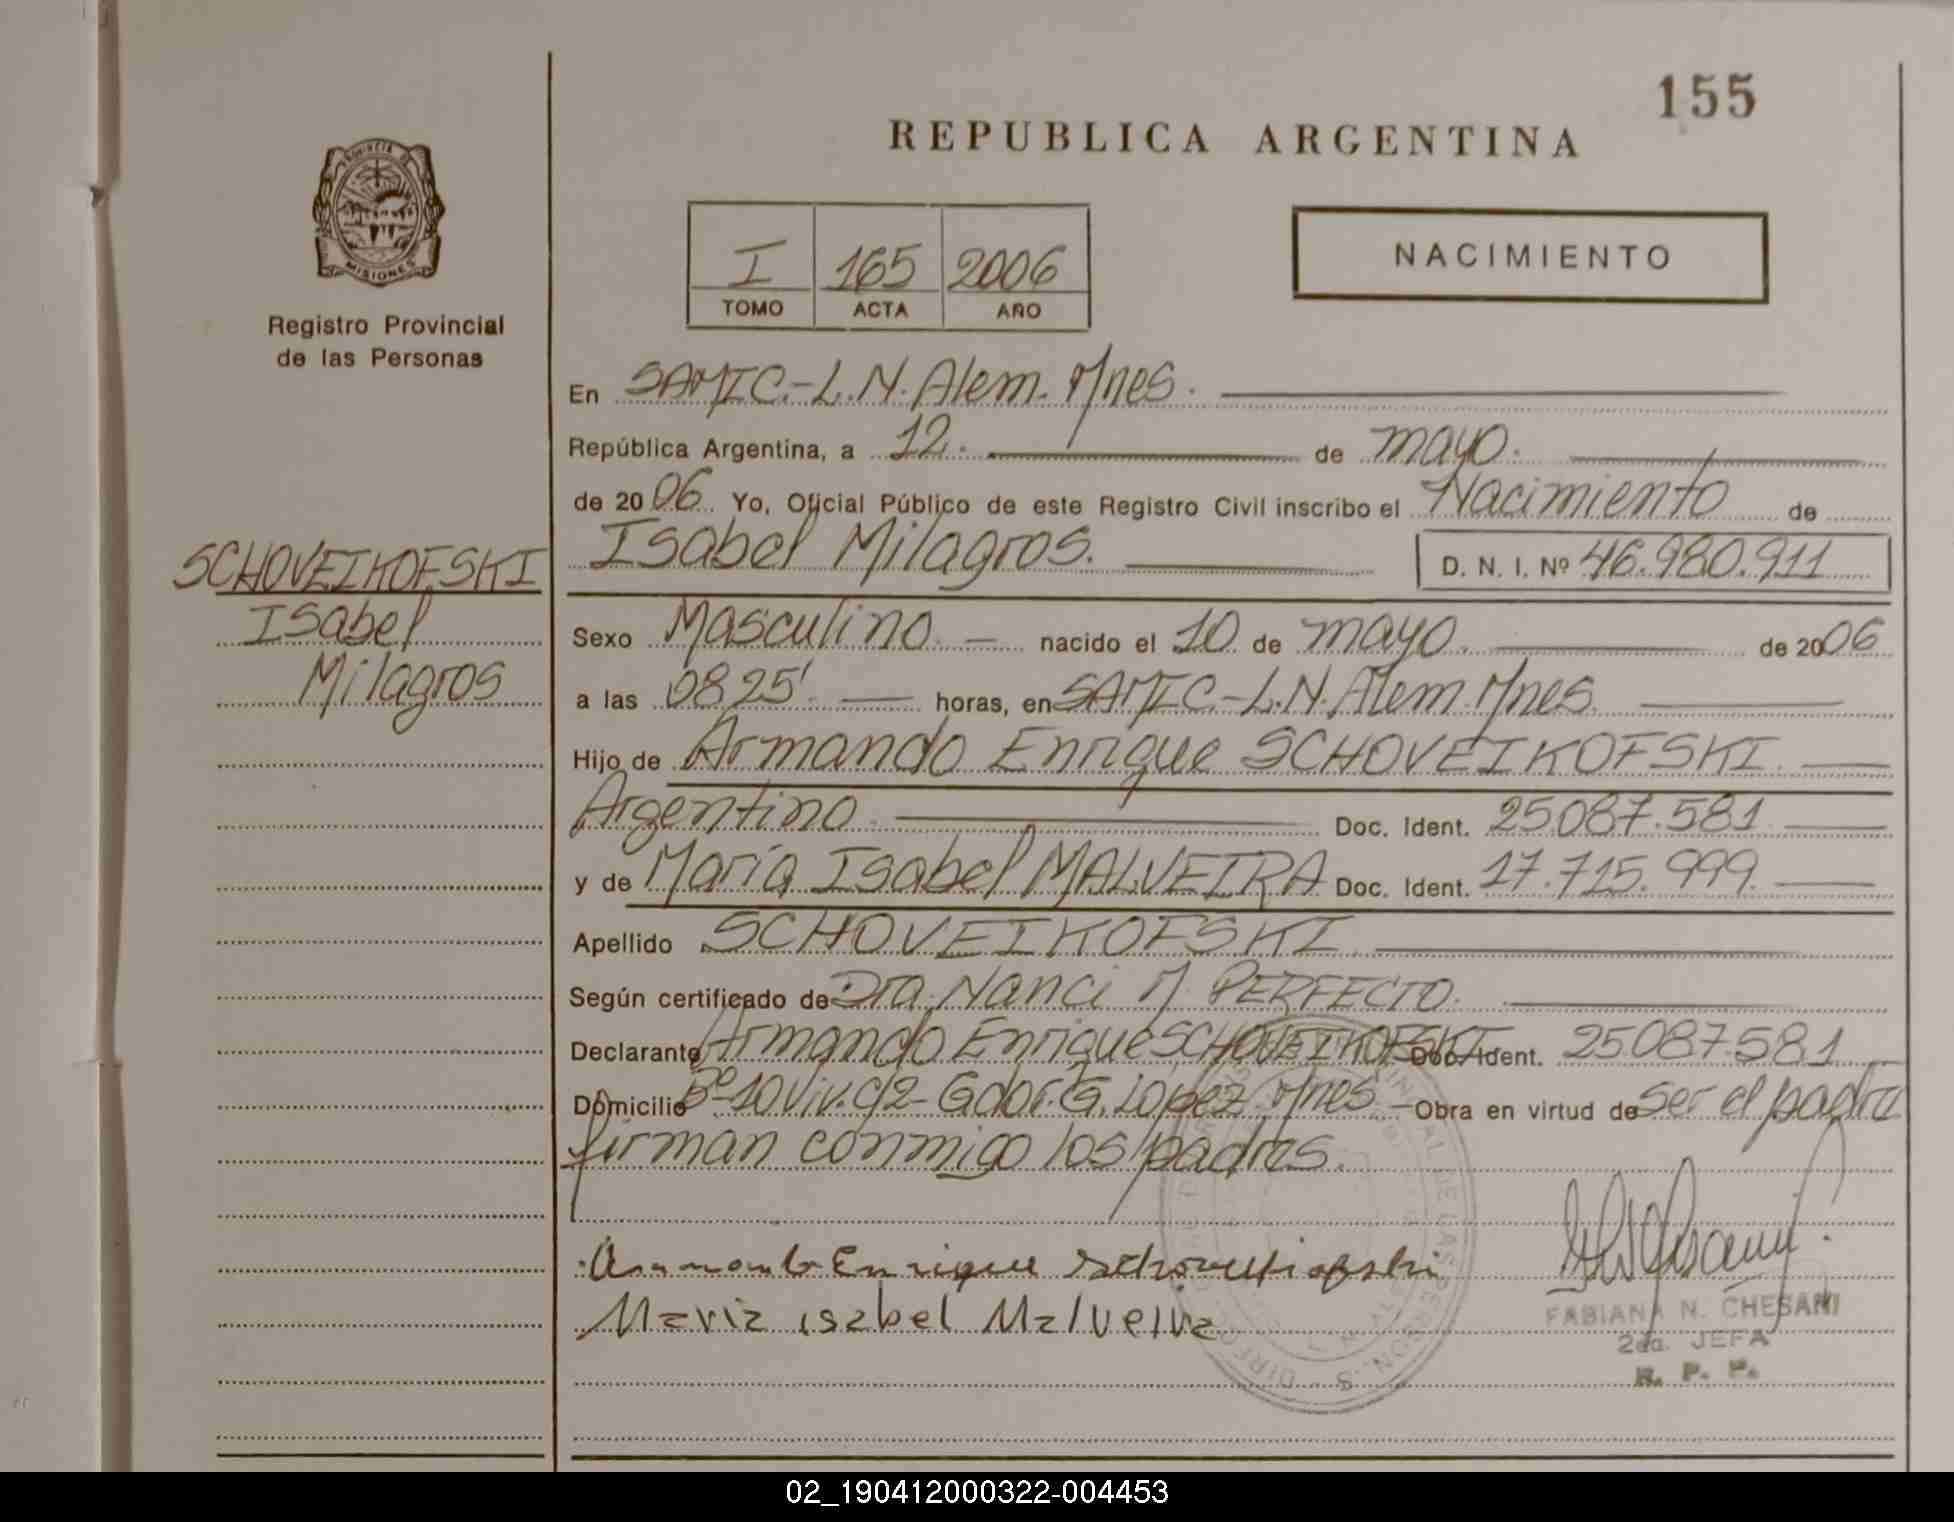 155
REPUBLICA ARGENTINA
PROVINCIA DE
MISIONES
Registro Provincial
de las Personas
I 165 2006
TOMO ACTA AÑO
NACIMIENTO
En SAMIC.-L.N.Alem.Mnes.
República Argentina, a 12. de mayo.
de 2006. Yo, Oficial Público de este Registro Civil inscribo el Nacimiento de
Isabel Milagros. D. N. I. Nº 46.980.911
SCHOVEIKOFSKI
Isabel
Milagros
Sexo Masculino. nacido el 10 de mayo. de 2006
a las 08 25' horas, en SAMIC-L.N.Alem.Mnes.
Hijo de Armando Enrique SCHOVEIKOFSKI.
Argentino. Doc. Ident. 25087.581
y de María Isabel MALVEIRA Doc. Ident. 17.715.999.
Apellido SCHOVEIKOFSKI.
Según certificado de Dra. Nanci M. PERFECTO.
Declarante Armando Enrique SCHOVEIKOFSKI Doc. Ident. 25087.581
Domicilio Bº-10Viv.C/2-Gdor.G.López/Mnes. Obra en virtud de ser el padre
firman conmigo los padres.
Armando Enrique Schoveikofski
Maria isabel Malveira
FABIANA N. CHESANI
2da. JEFA
R. P. P.
02_190412000322-004453